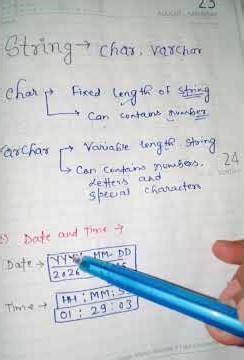 23
AUGUST
String → char, varchar
char → Fixed length of string
→ Can contains number
archar → Variable length string
→ Can Contains numbers,
letters and
special characters
24
) Date and Time →
Date → YYY MM-DD
2026
Time → HH : MM : S
01 : 29 : 03